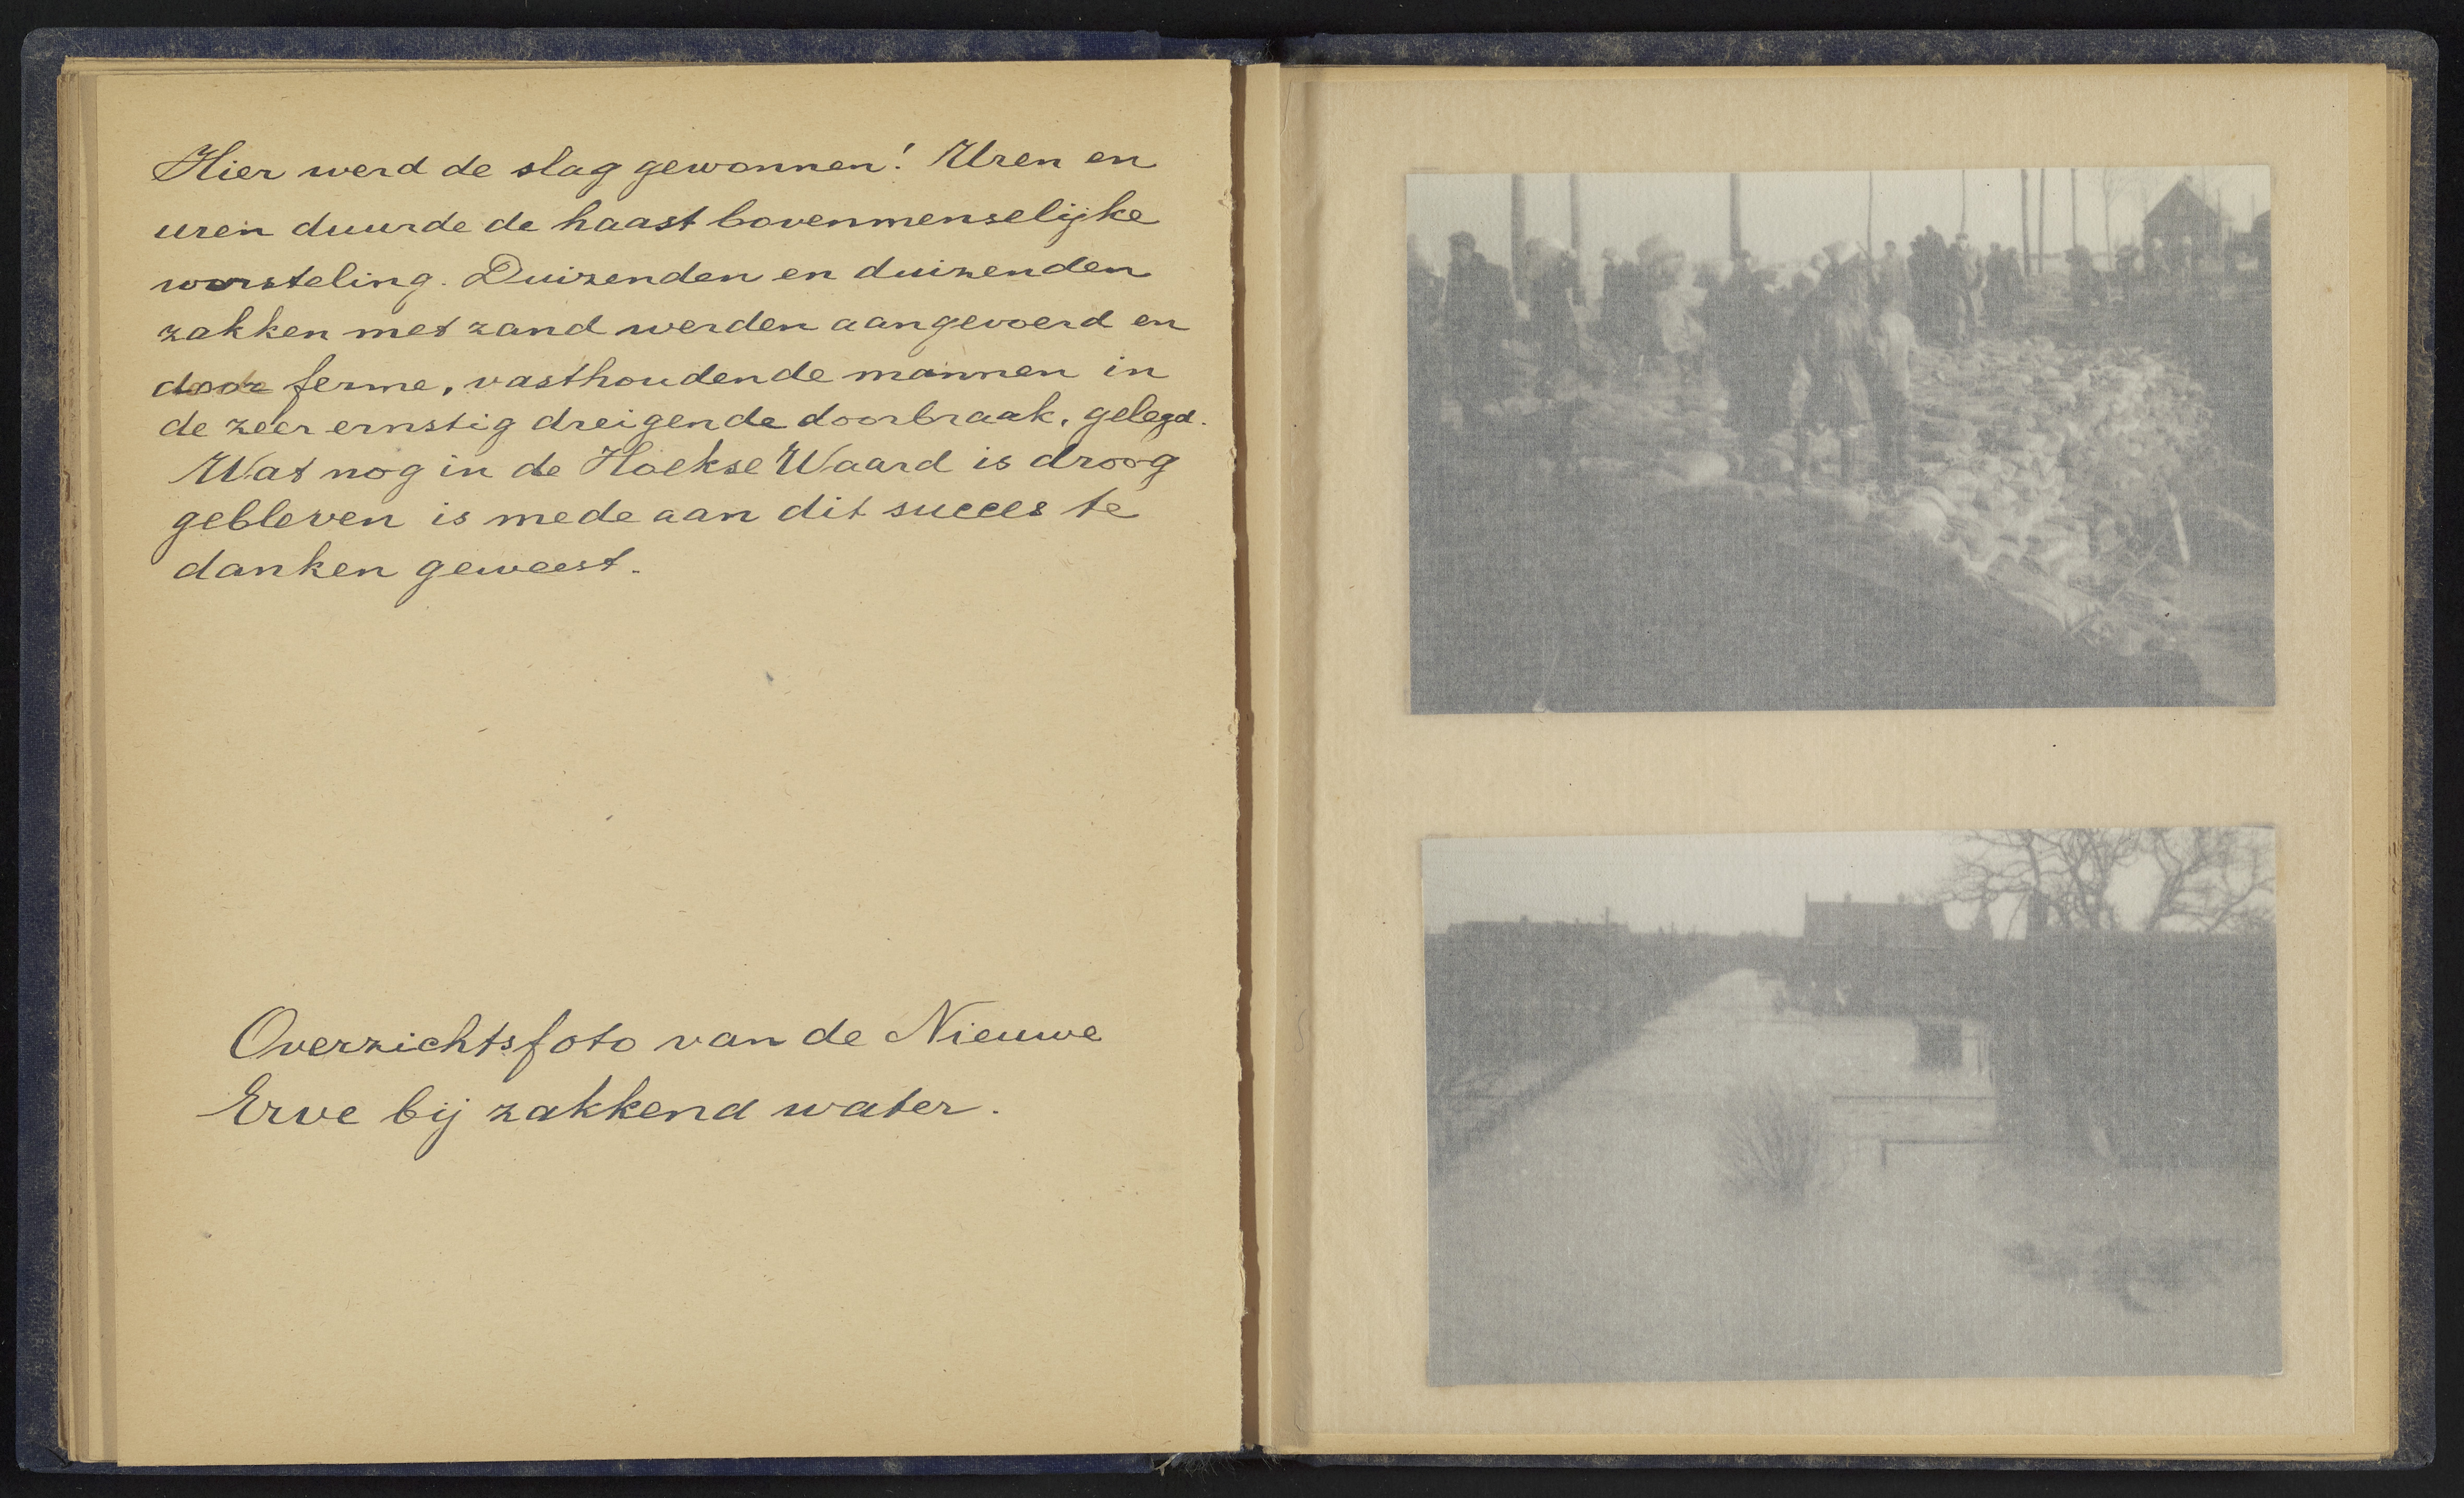 Hier werd de slag gewonnen! Uren en
uren duurde de haast bovenmenselijke
worsteling. Duizenden en duizenden
zakken met zand werden aangevoerd en
door ferme, vasthoudende mannen in
de zeer ernstig dreigende doorbraak, gelegd.
Wat nog in de Hoekse Waard is droog
gebleven is mede aan dit succes te
danken geweest.
Overzichtsfoto van de Nieuwe
Erve bij zakkend water.